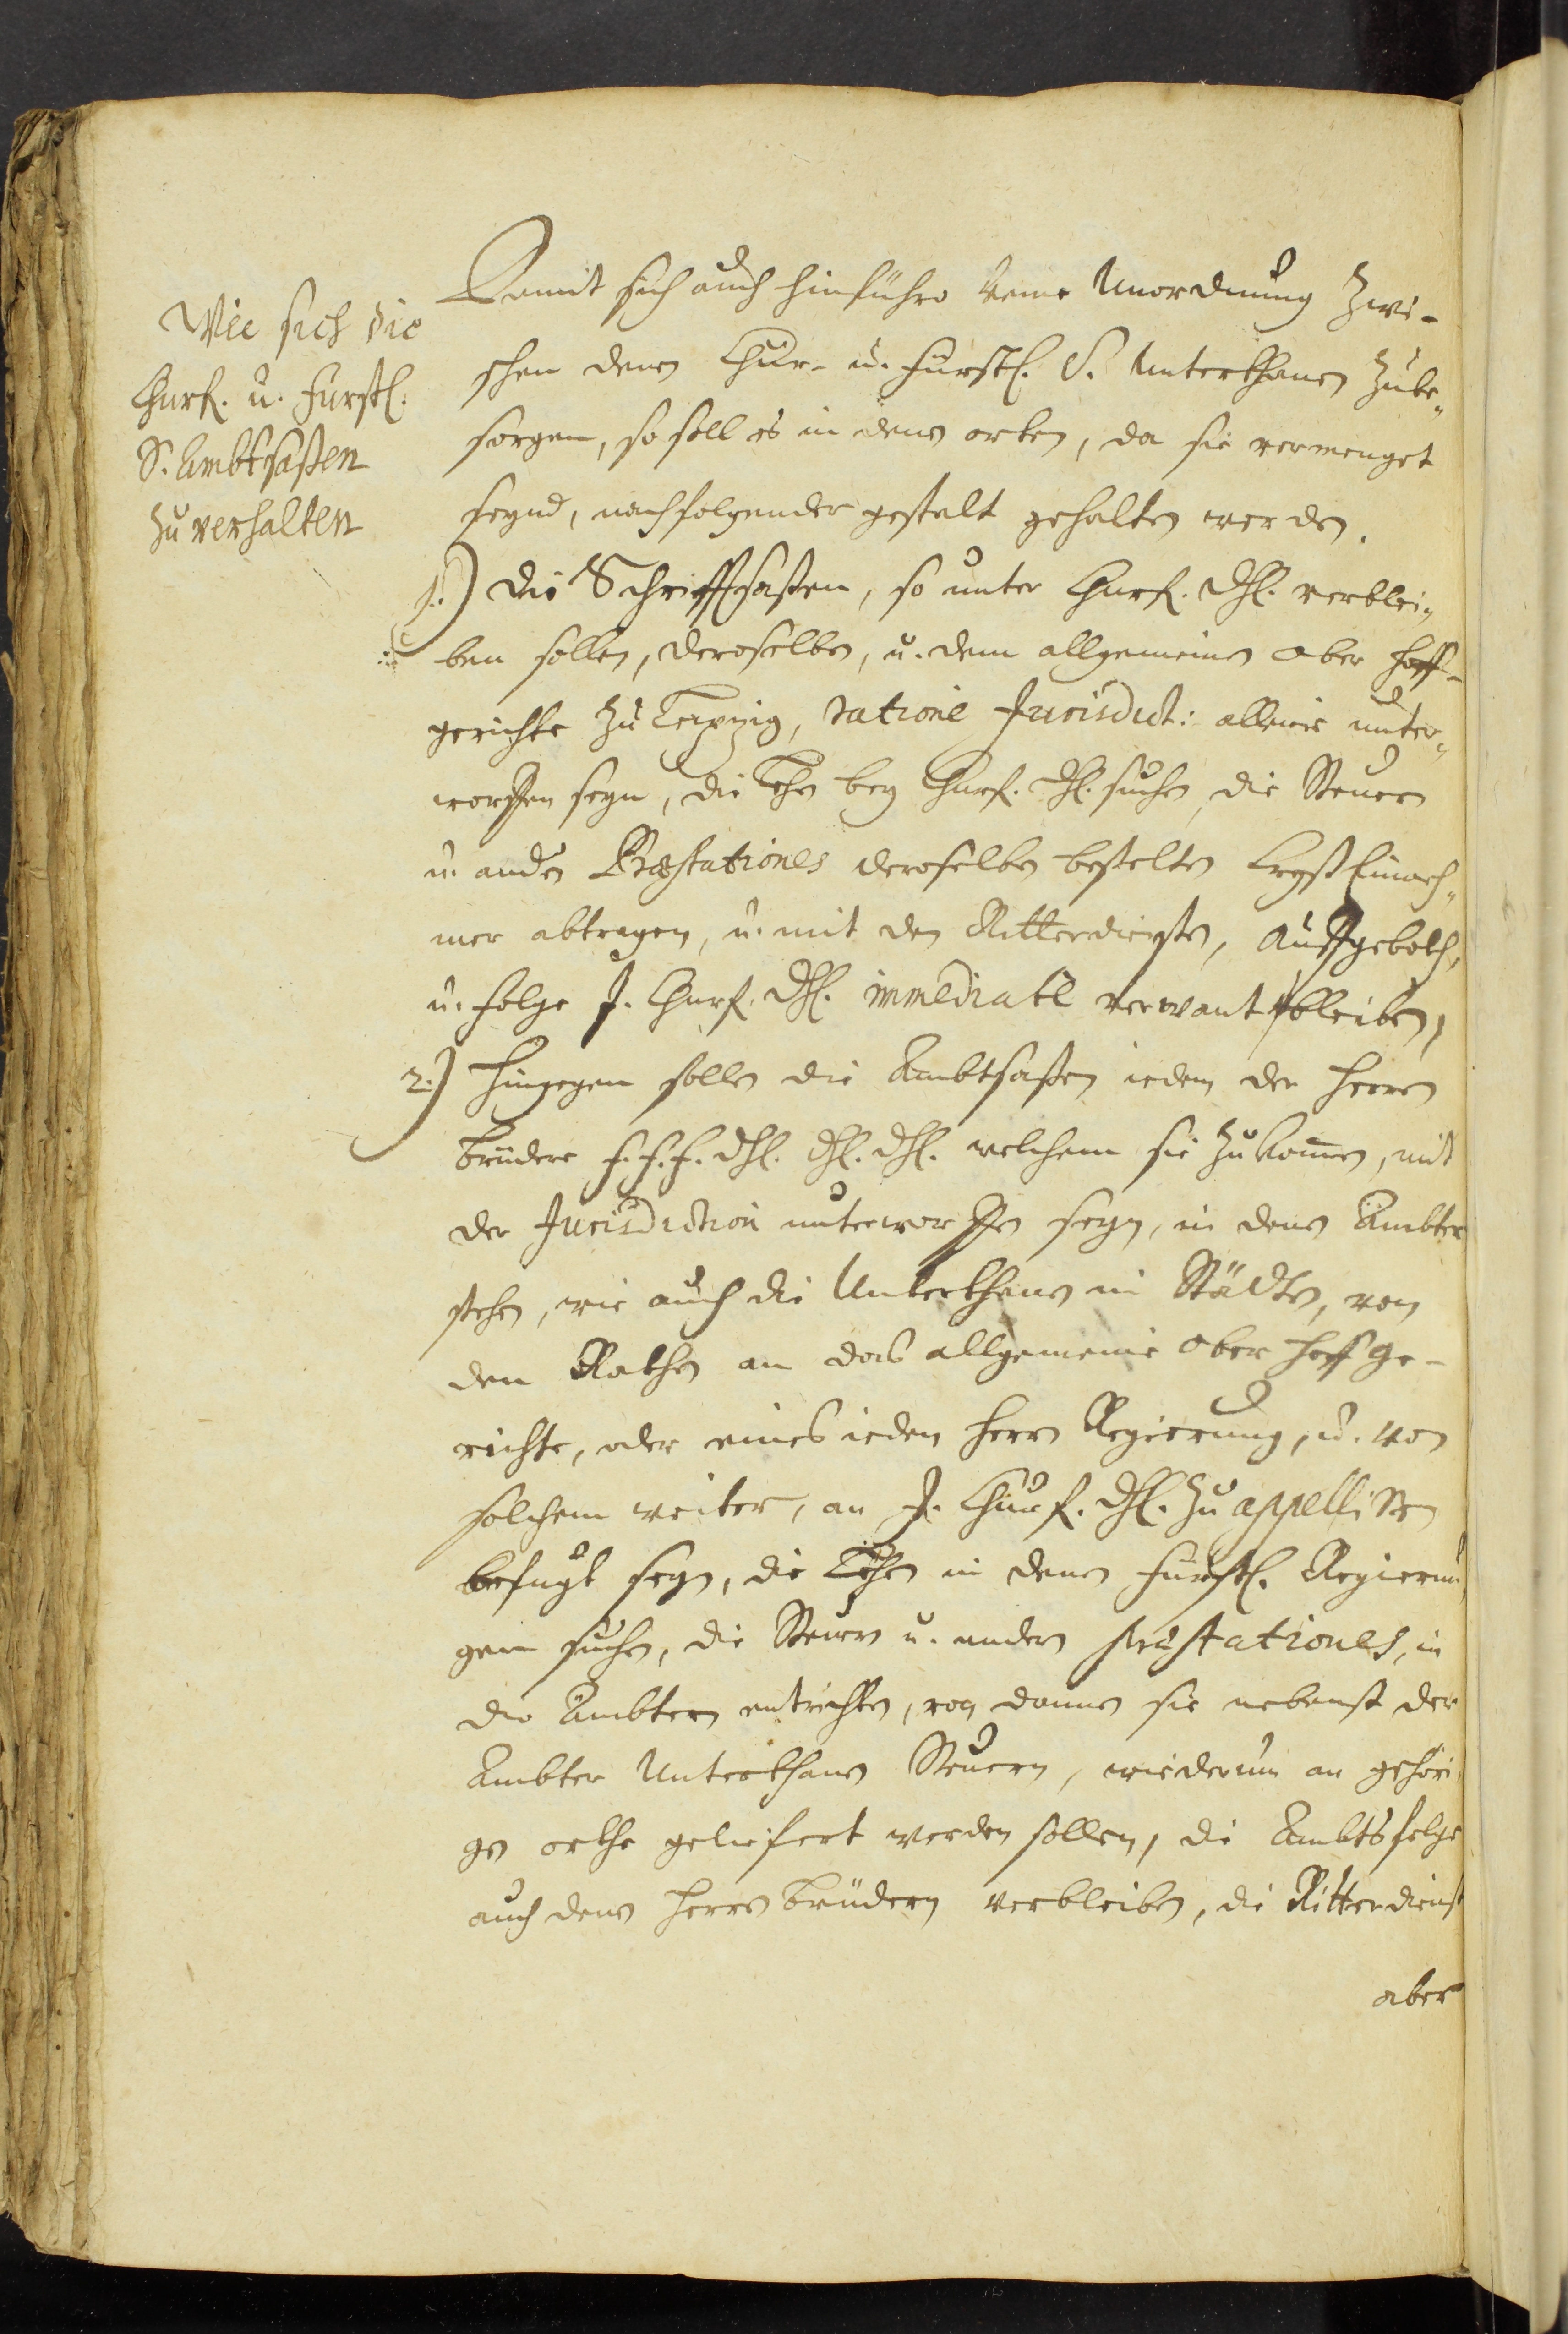 Wie sich die
Churf. u. Fürstl.
S. Ambtsaßen
zu verhalten
Damit sich auch hinführo keine Unordnung zwi-
schen denen Chur- u. Fürstl. S. Unterthanen zube-
sorgen, so soll es in denen orten, da sie vermenget
seynd, nachfolgender gestalt gehalten werden.
1.) Die Schrifftsaßen, so unter Churf. Dhl. verblei-
ben sollen, deroselben, u. dem allgemeinen Ober Hoff-
gerichte zu Leipzig, ratione Jurisdict: alleine unter-
worffen seyn, die Lehn bey Churf. Dhl. suchen, die Steuern
u. andern Præstationes deroselben bestelten Creyß Einneh-
mer abtragen, u. mit den Ritterdiensten, Auffgeboth,
u. Folge J. Churf. Dhl. immediatè verwant bleiben,
2.) Hingegen sollen die Ambtsaßen ieden der Herren
Brüdere F. F. F. Dhl. Dhl. Dhl. welchem sie zukom̃en, mit
der Jurisdiction unterworffen seyn, in denen Ämbtern
stehen, wie auch die Unterthanen in Städten, von
den Räthen an das allgemeine Ober Hoff ge-
richte, oder eines ieden Herrn Regierung, u. von
solchem weiter, an J. Churf. Dhl. zu appelliren
befugt seyn, die Lehen in denen Fürstl. Regierun-
gen suchen, die Steuern u. andern præstationes, in
die Ämbtern entrichten, von dannen sie nebenst der
Ambter Unterthanen Steuern, wiederum an gehöri-
gen orthe geliefert werden sollen, die Ambtsfolge
auch denen Herren Brüdern verbleiben, die Ritterdienst
aber